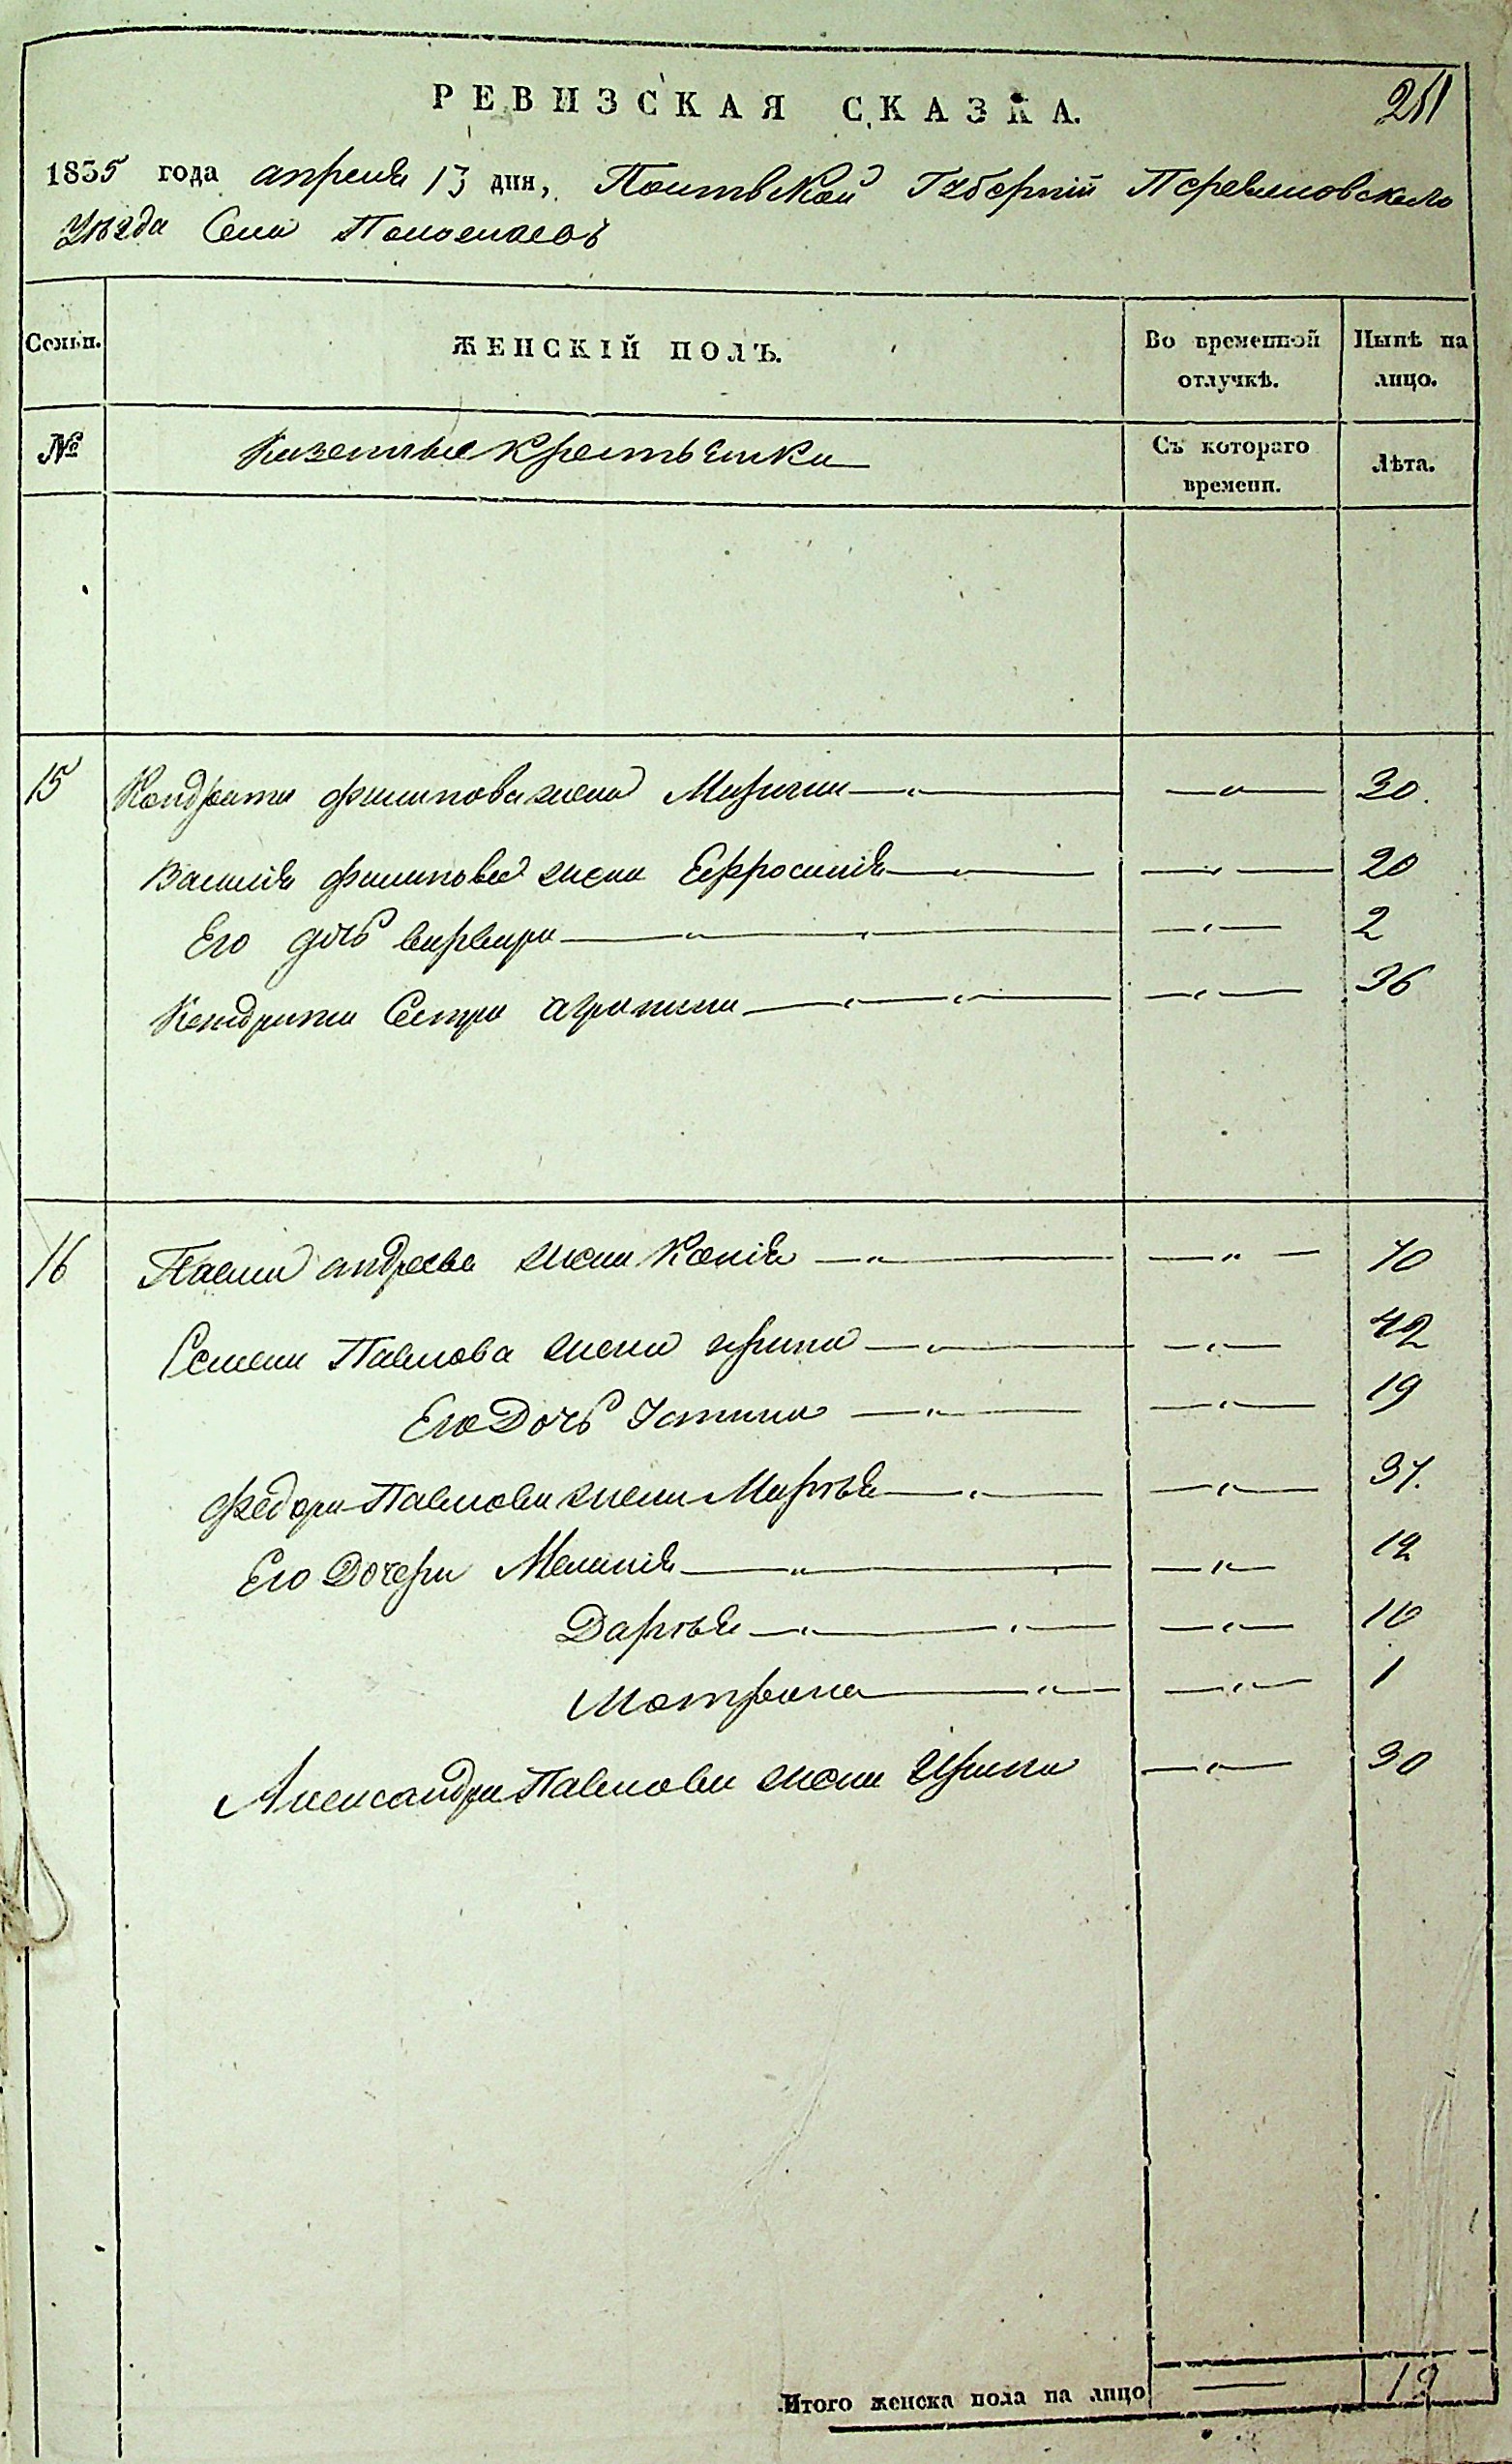 РЕВИЗСКАЯ СКАЗКА.
1835 года апреля 13 дня, Полтавской Губерніи Переяславского
Уезда Села
Семьи. ЖЕНСКІЙ ПОЛЪ. Во временной отлучкѣ. Нынѣ на лицо.
№ Казенные крестьянки Съ котораго времени. Лѣта.
15 Кондрата филипова жена Марина 30.
Василія филипова жена Ефросинія 20
Его дочь варвара 2
Кондрата Сестра агрипина 36
16 Павла андреева жена Ксенія 70
Семена Павлова жена ирина 42
Его Дочь Устина 19
федора Павлова жена Марфа 37.
Его Дочери Меланія 12
Дарья 10
Мотрона 1
Александра Павлова жена Ирина 30
Итого женска пола на лицо — 12